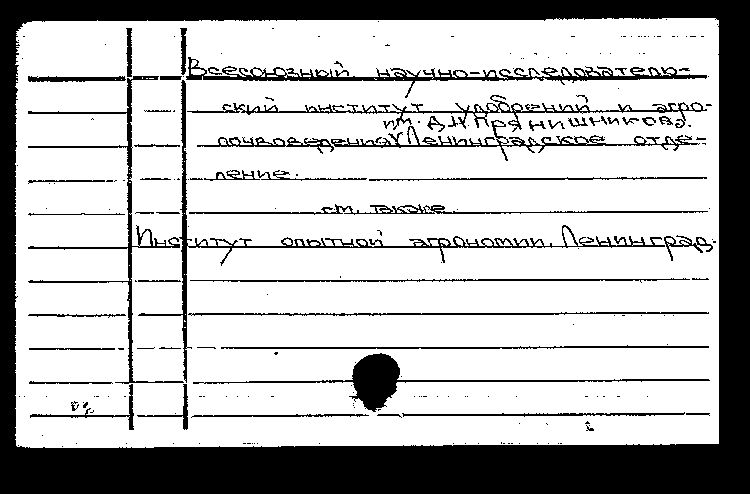 Всесоюзный научно-исследователь-
ский институт удобрений и агро-
им. Д.Н.Прянишникова.
почвоведения Ленинградское отде-
ление.
см. также
Институт опытной агрономии. Ленинград.